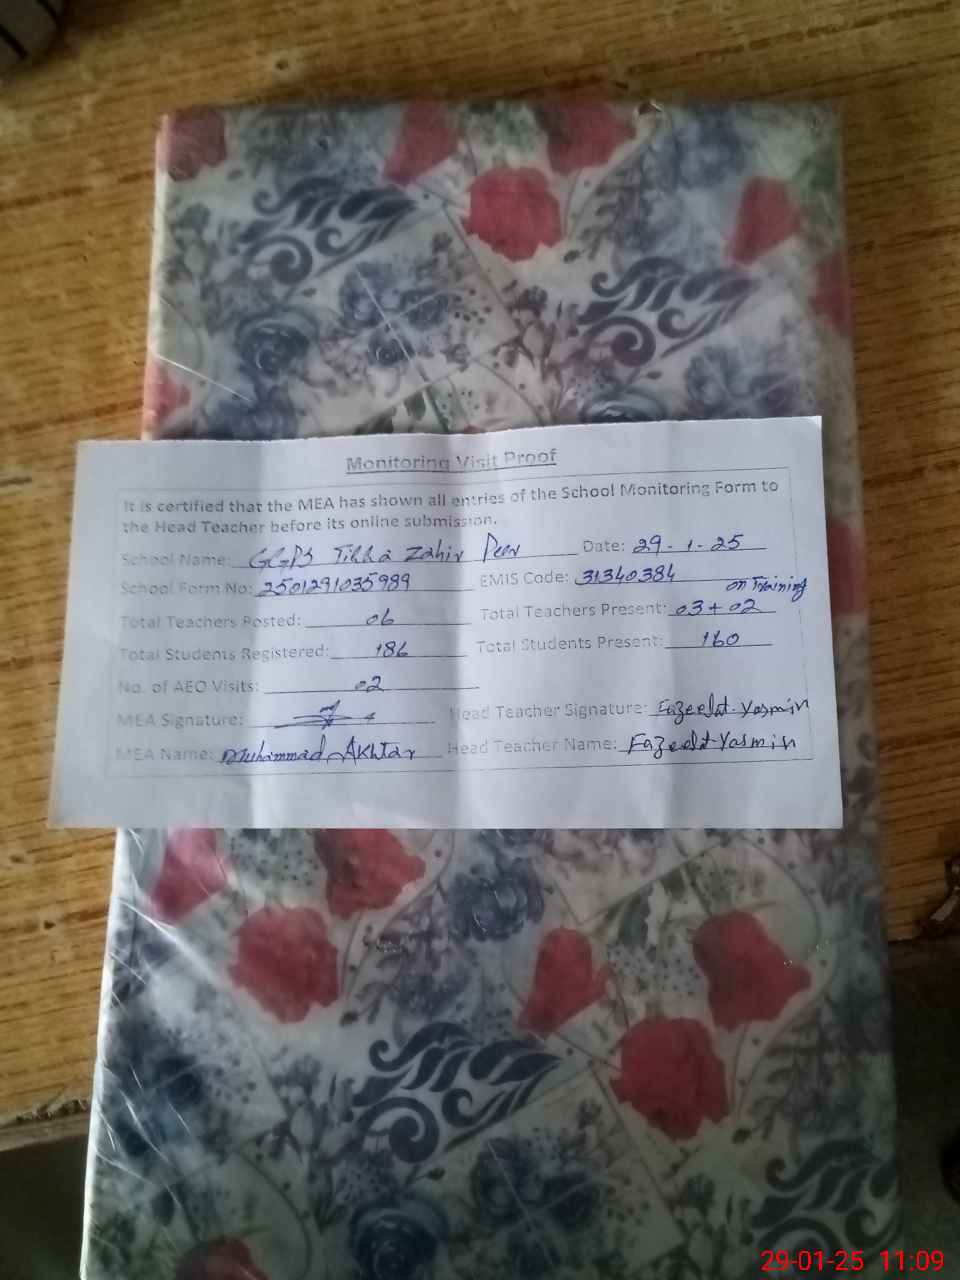 Monitoring Visit Proof
It is certified that the MEA has shown all entries of the School Monitoring Form to
the Head Teacher before its online submission.
School Name: GGPS Tibba Zahir Peer Date: 29-1-25
School Form No: 2501291035989 EMIS Code: 31340384
on Training
Total Teachers Posted: 06 Total Teachers Present: 03+02
Total Students Registered: 186 Total Students Present: 160
No. of AEO Visits: 02
MEA Signature: Head Teacher Signature: Fazeelat Yasmin
MEA Name: Muhammad Akhtar Head Teacher Name: Fazeelat Yasmin
29-01-25 11:09